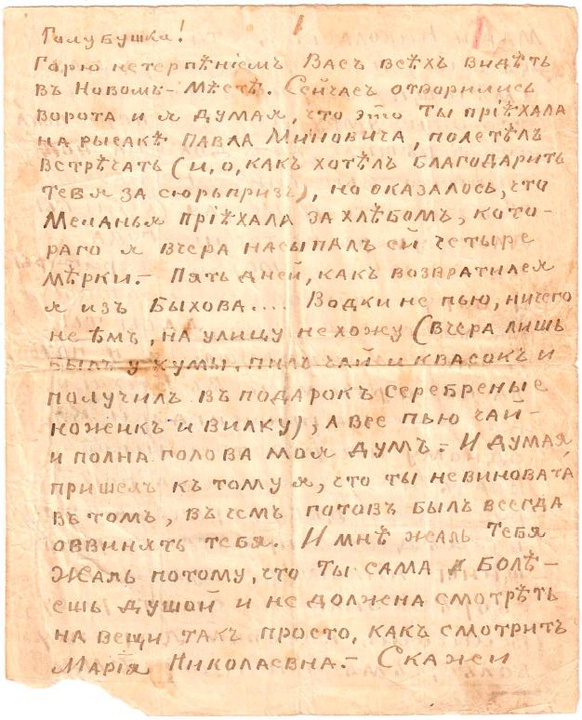 Голубушка!
Горю нетерпѣніемъ Васъ всѣхъ видѣть
въ Новомъ-Мѣстѣ. Сейчасъ отворились
ворота и я думая, что это ты пріѣхала
на рысакѣ Павла Миновича, полетѣлъ
встрѣчать (и, о, какъ хотѣлъ благодарить
тебя за сюрьпризъ), но оказалось, что
Меланья пріѣхала за хлѣбомъ, кото-
раго я вчера насыпалъ ей четыре
мѣрки.- Пять дней, какъ возвратился
я изъ Быхова.... Водки не пью, ничего
не ѣмъ, на улицу не хожу (вчера лишь
былъ у кумы, пилъ чай и квасокъ и
получилъ въ подарокъ серебреные
ноженкъ и вилку), а все пью чай-
и полна голова моя думъ.- И думая
пришелъ къ тому я, что ты не виновата
въ томъ, въ чемъ готовъ былъ всегда
обвинять тебя. И мнѣ жаль тебя
жаль потому, что ты сама болѣ-
ешь душой и не должна смотрѣть
на вещи такъ просто, какъ смотритъ
Марія Николаевна.- Скажи